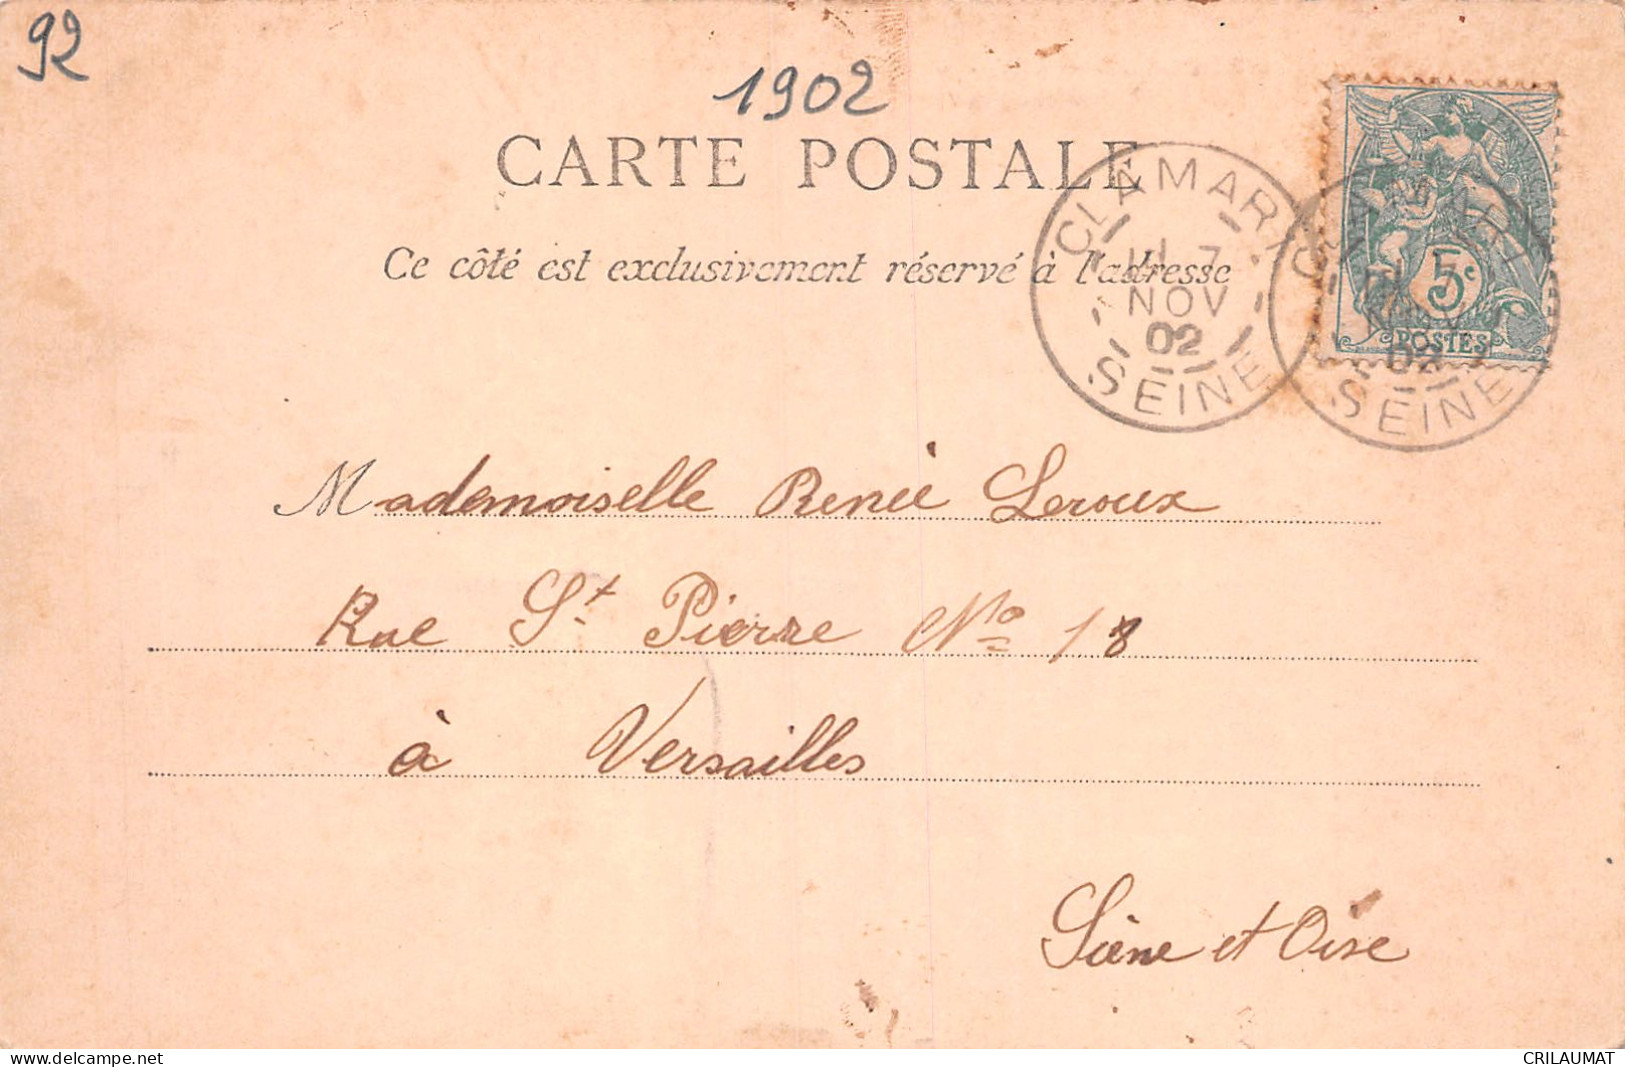 92
1902
CARTE POSTALE
Ce côté est exclusivement réservé à l'adresse
CLAMART
7
NOV
02
SEINE
CLAMART
NOV
02
SEINE
5c
POSTES
Mademoiselle Renée Leroux
Rue St Pierre No 18
à Versailles
Siène et Oise
www.delcampe.net
CRILAUMAT